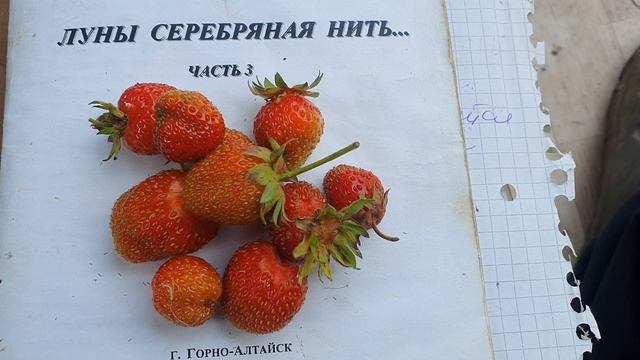 ЛУНЫ СЕРЕБРЯНАЯ НИТЬ...
ЧАСТЬ 3
Г. ГОРНО-АЛТАЙСК